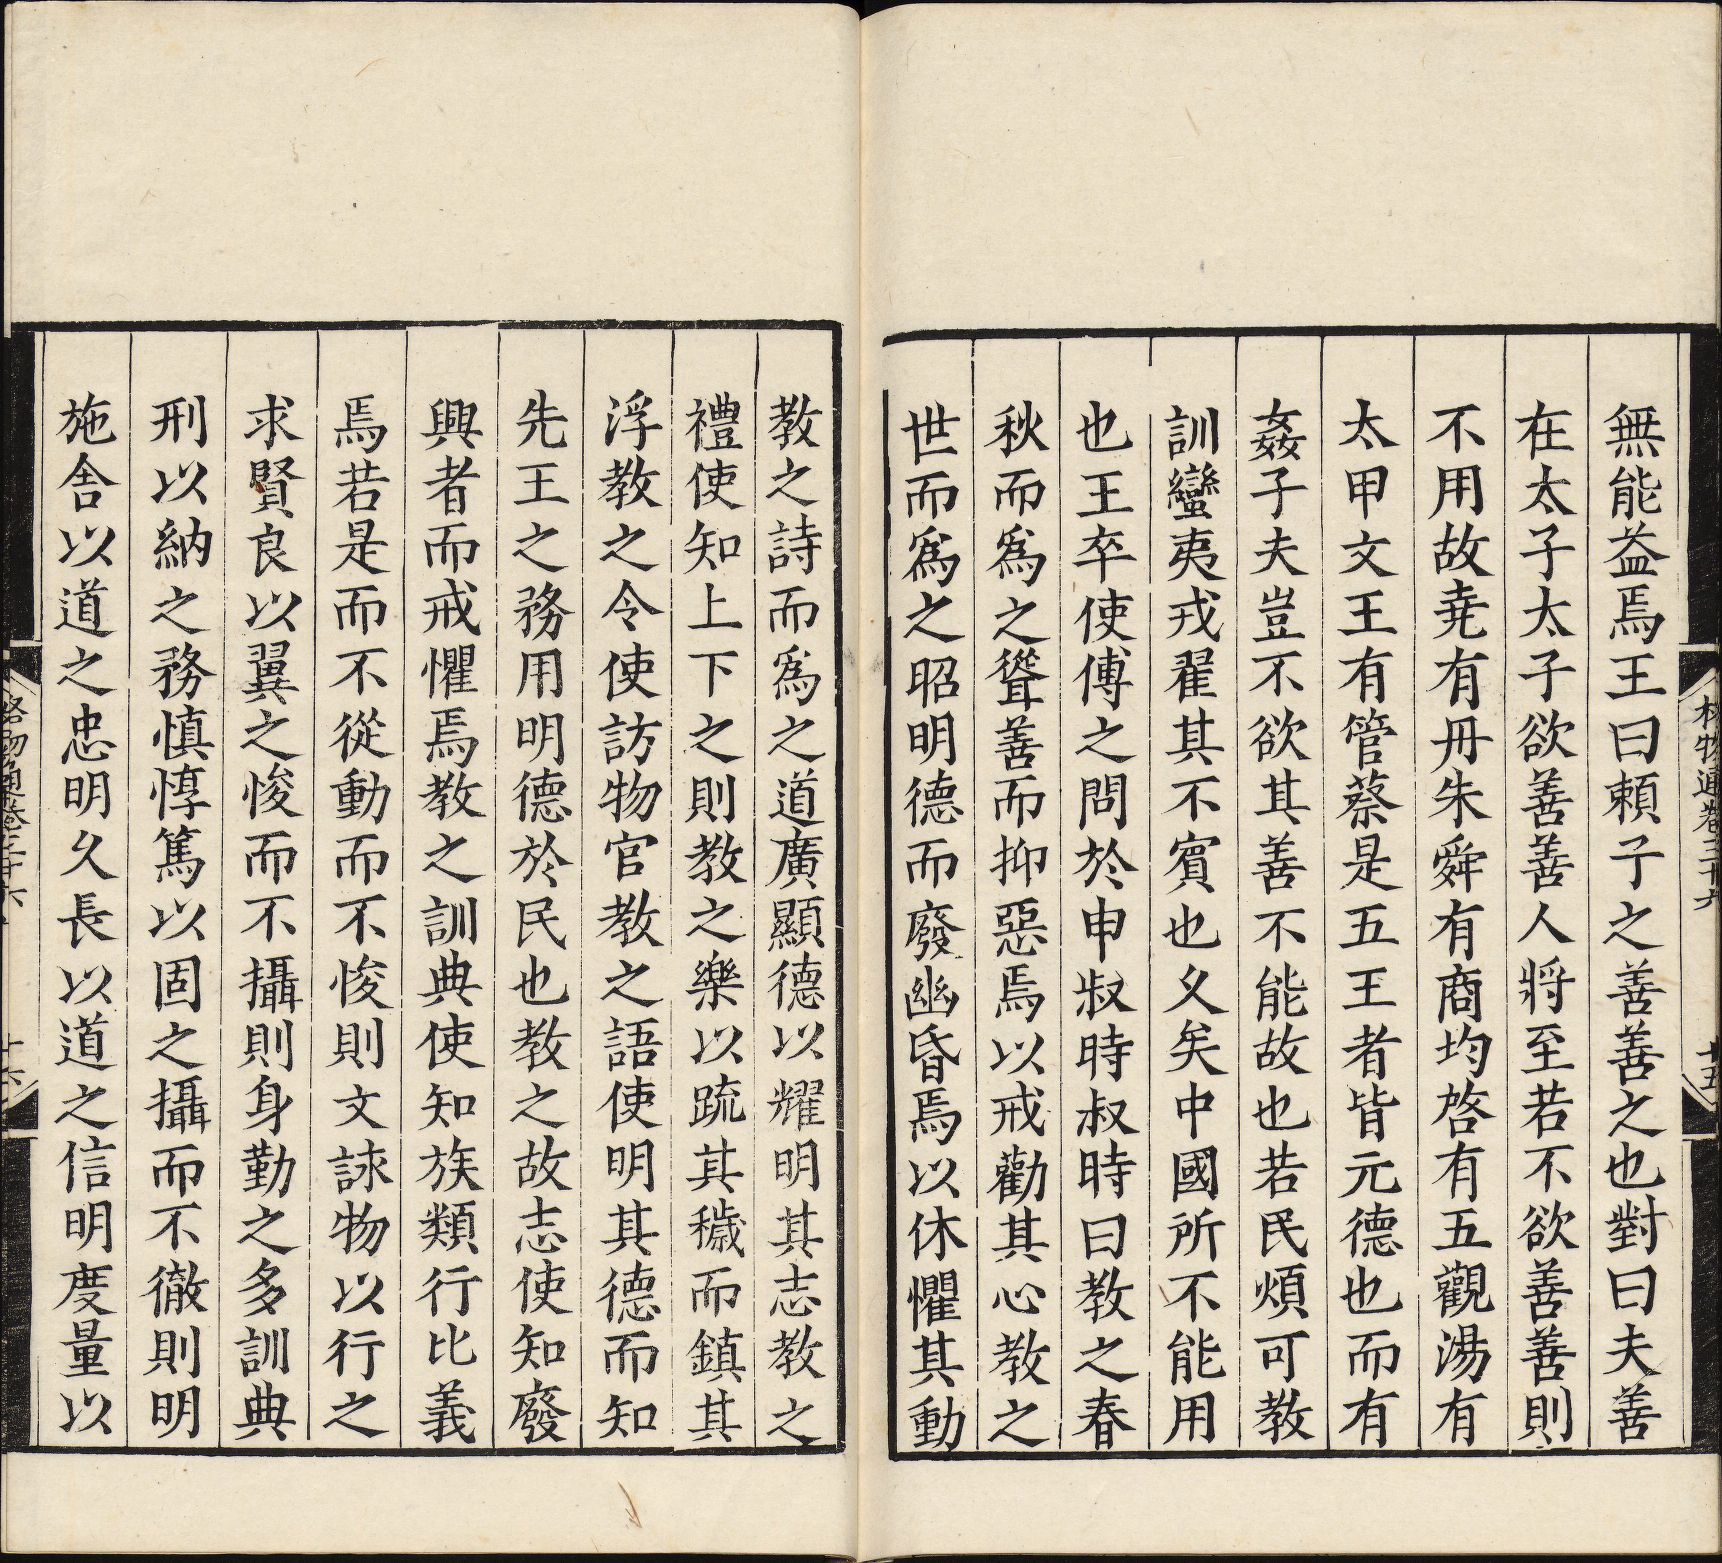 無能益焉王曰頼子之善善之也對曰夫善
在太子太子欲善善人將至若不欲善善則
不用故堯有丹朱舜有商均啓有五觀湯有
太甲文王有管蔡是五王者皆元德也而有
姦子夫豈不欲其善不能故也若民煩可教
訓蠻夷戎翟其不賓也乆矣中國所不能用
也王卒使傅之問於申叔時叔時曰教之春
秋而爲之聳善而抑惡焉以戒勸其心教之
世而爲之昭明德而廢幽昏焉以休懼其動
格物通卷三十六
十五
教之詩而爲之道廣顯德以耀明其志教之
禮使知上下之則教之樂以䟽其穢而鎮其
浮教之令使訪物官教之語使明其德而知
先王之務用明德於民也教之故志使知廢
興者而戒懼焉教之訓典使知族類行比義
焉若是而不從動而不悛則文詠物以行之
求賢良以翼之悛而不攝則身勤之多訓典
刑以納之務慎惇篤以固之攝而不徹則明
施舍以道之忠明久長以道之信明度量以
格物通卷三十六
十六